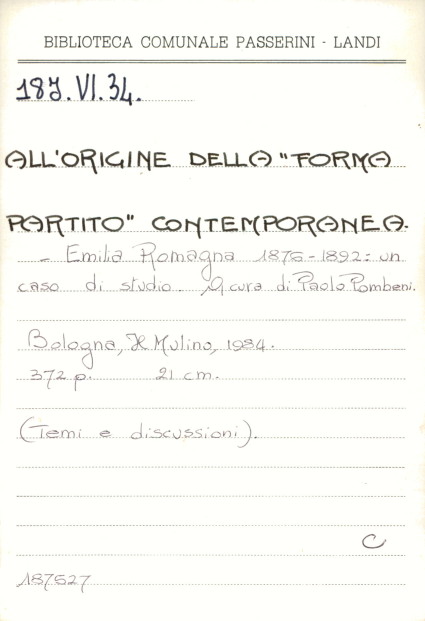 BIBLIOTECA COMUNALE PASSERINI - LANDI
18J.VI.34.
ALL'ORIGINE DELLA "FORMA
PARTITO" CONTEMPORANEA.
- Emilia Romagna 1876-1892: un
caso di studio. A cura di Paolo Pombeni.
Bologna, Il Mulino, 1984.
372 p. 21 cm.
(Temi e discussioni).
C
187627